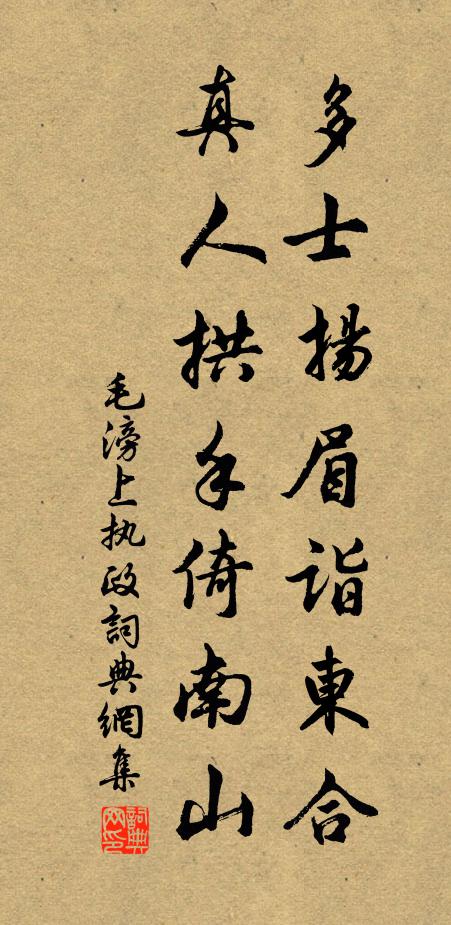 多士揚眉詣東合
真人拱手倚南山
毛滂上执政詞典網集
詞典网印